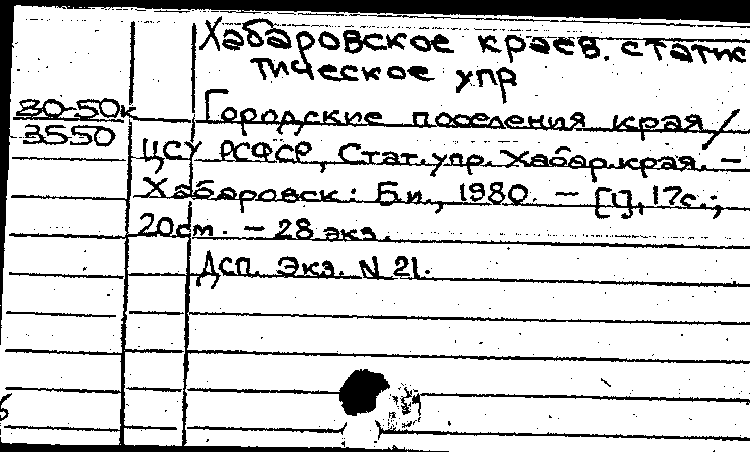 Хабаровское краев. статис
тическое упр
30-50к
3550
Городские поселения края /
ЦСУ РСФСР, Стат. упр. Хабар.края. –
Хабаровск: Б.и., 1980. – [1], 17с.;
20см. – 28 экз.
Дсп. Экз. N 21.